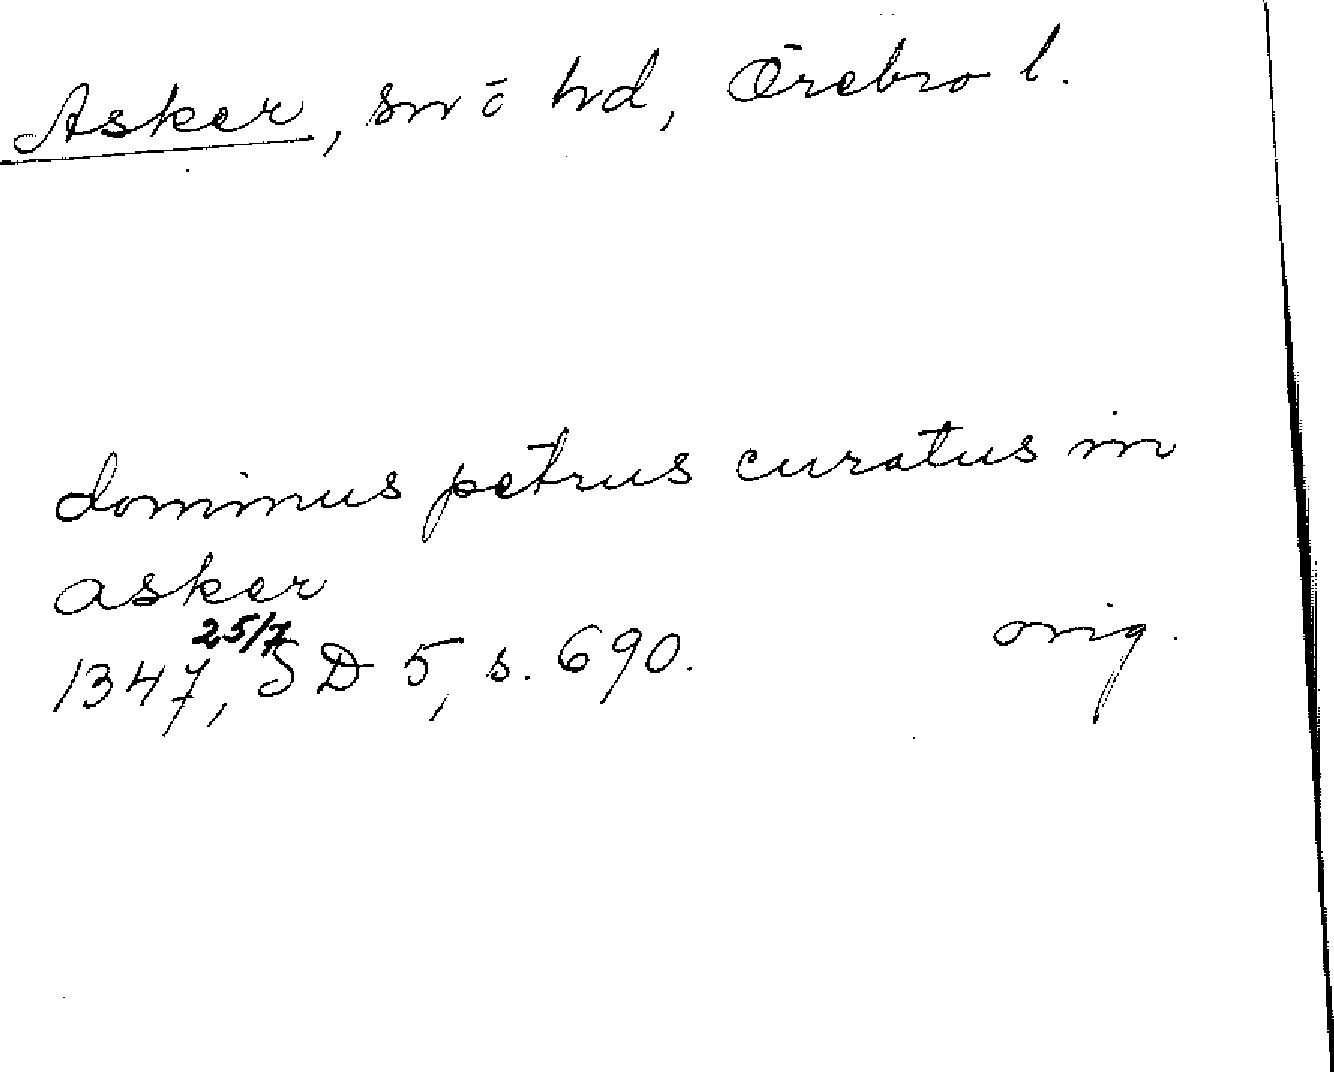 Asker, sn ō hd, Örebro l.
dominus petrus curatus in
asker
1347 25/7, SD 5, s. 690. orig.